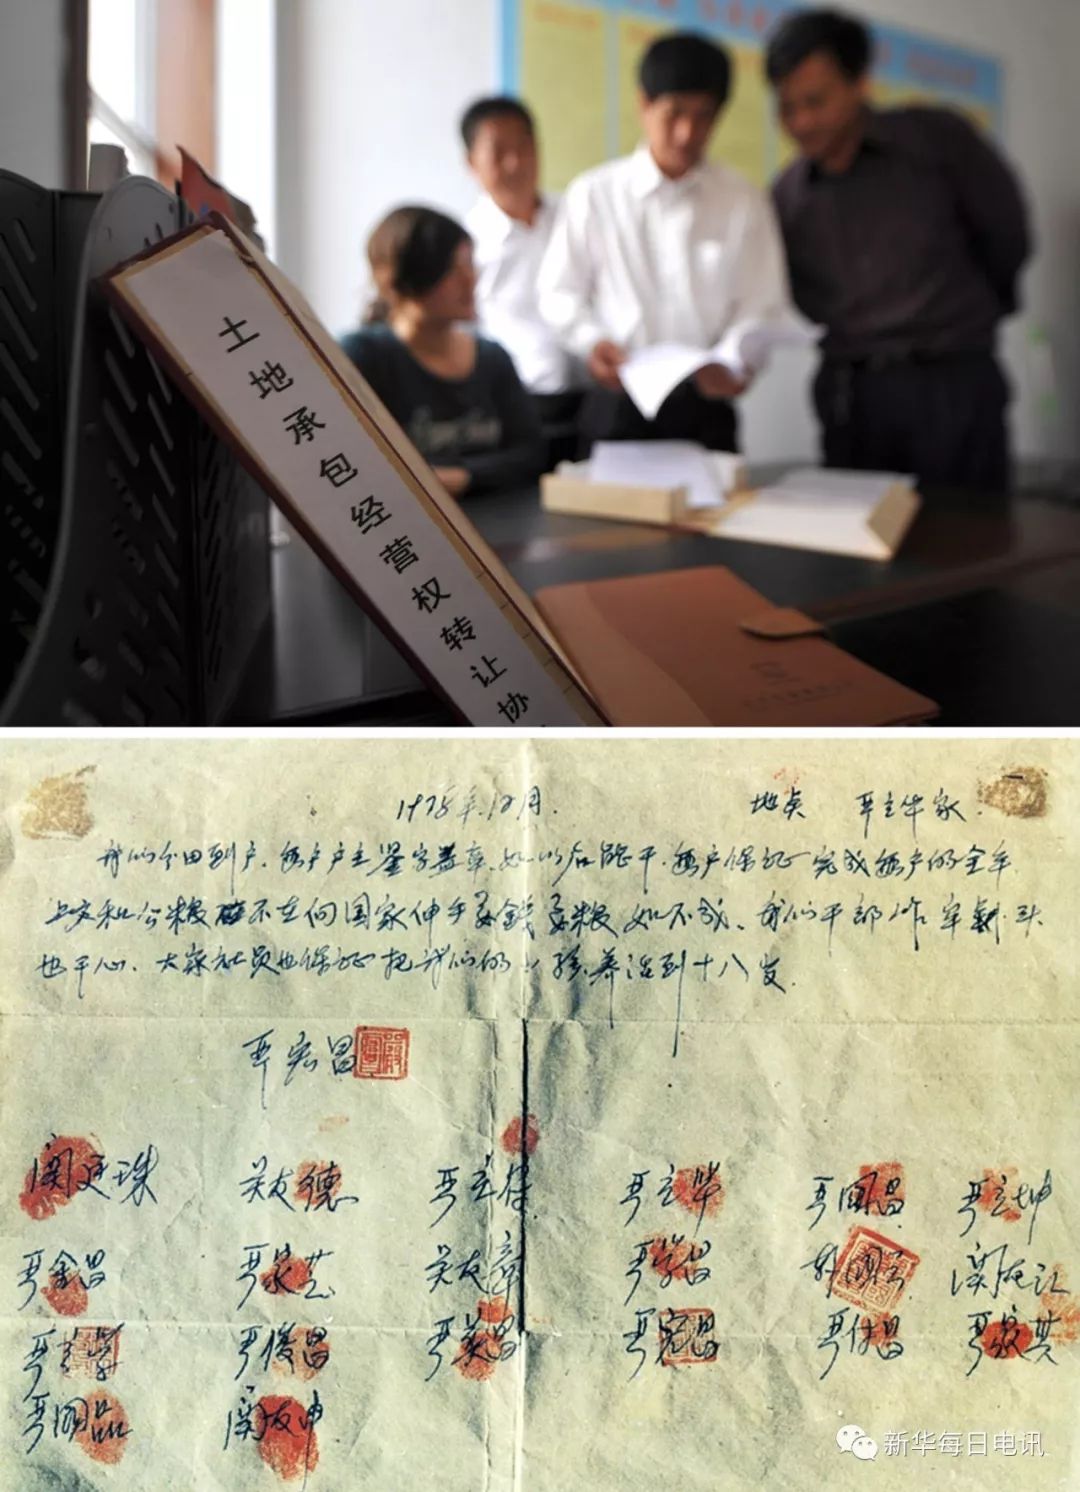 土地承包经营权转让协
1978年12月. 地点 严立华家
我们分田到户,每户户主签字盖章,如以后能干,每户保证完成每户的全年
上交和公粮不在向国家伸手要钱要粮如不成,我们干部作牢刹头
也干心,大家社员也保证把我们的小孩养活到十八岁.
严宏昌
关廷珠 关友德 严立符 严立华 严国昌 严立坤
严金昌 严家芝 关友章 严学昌 韩国云 关友江
严立学 严俊昌 严美昌 严宏昌 严付昌 严家其
严国品 关友申
新华每日电讯